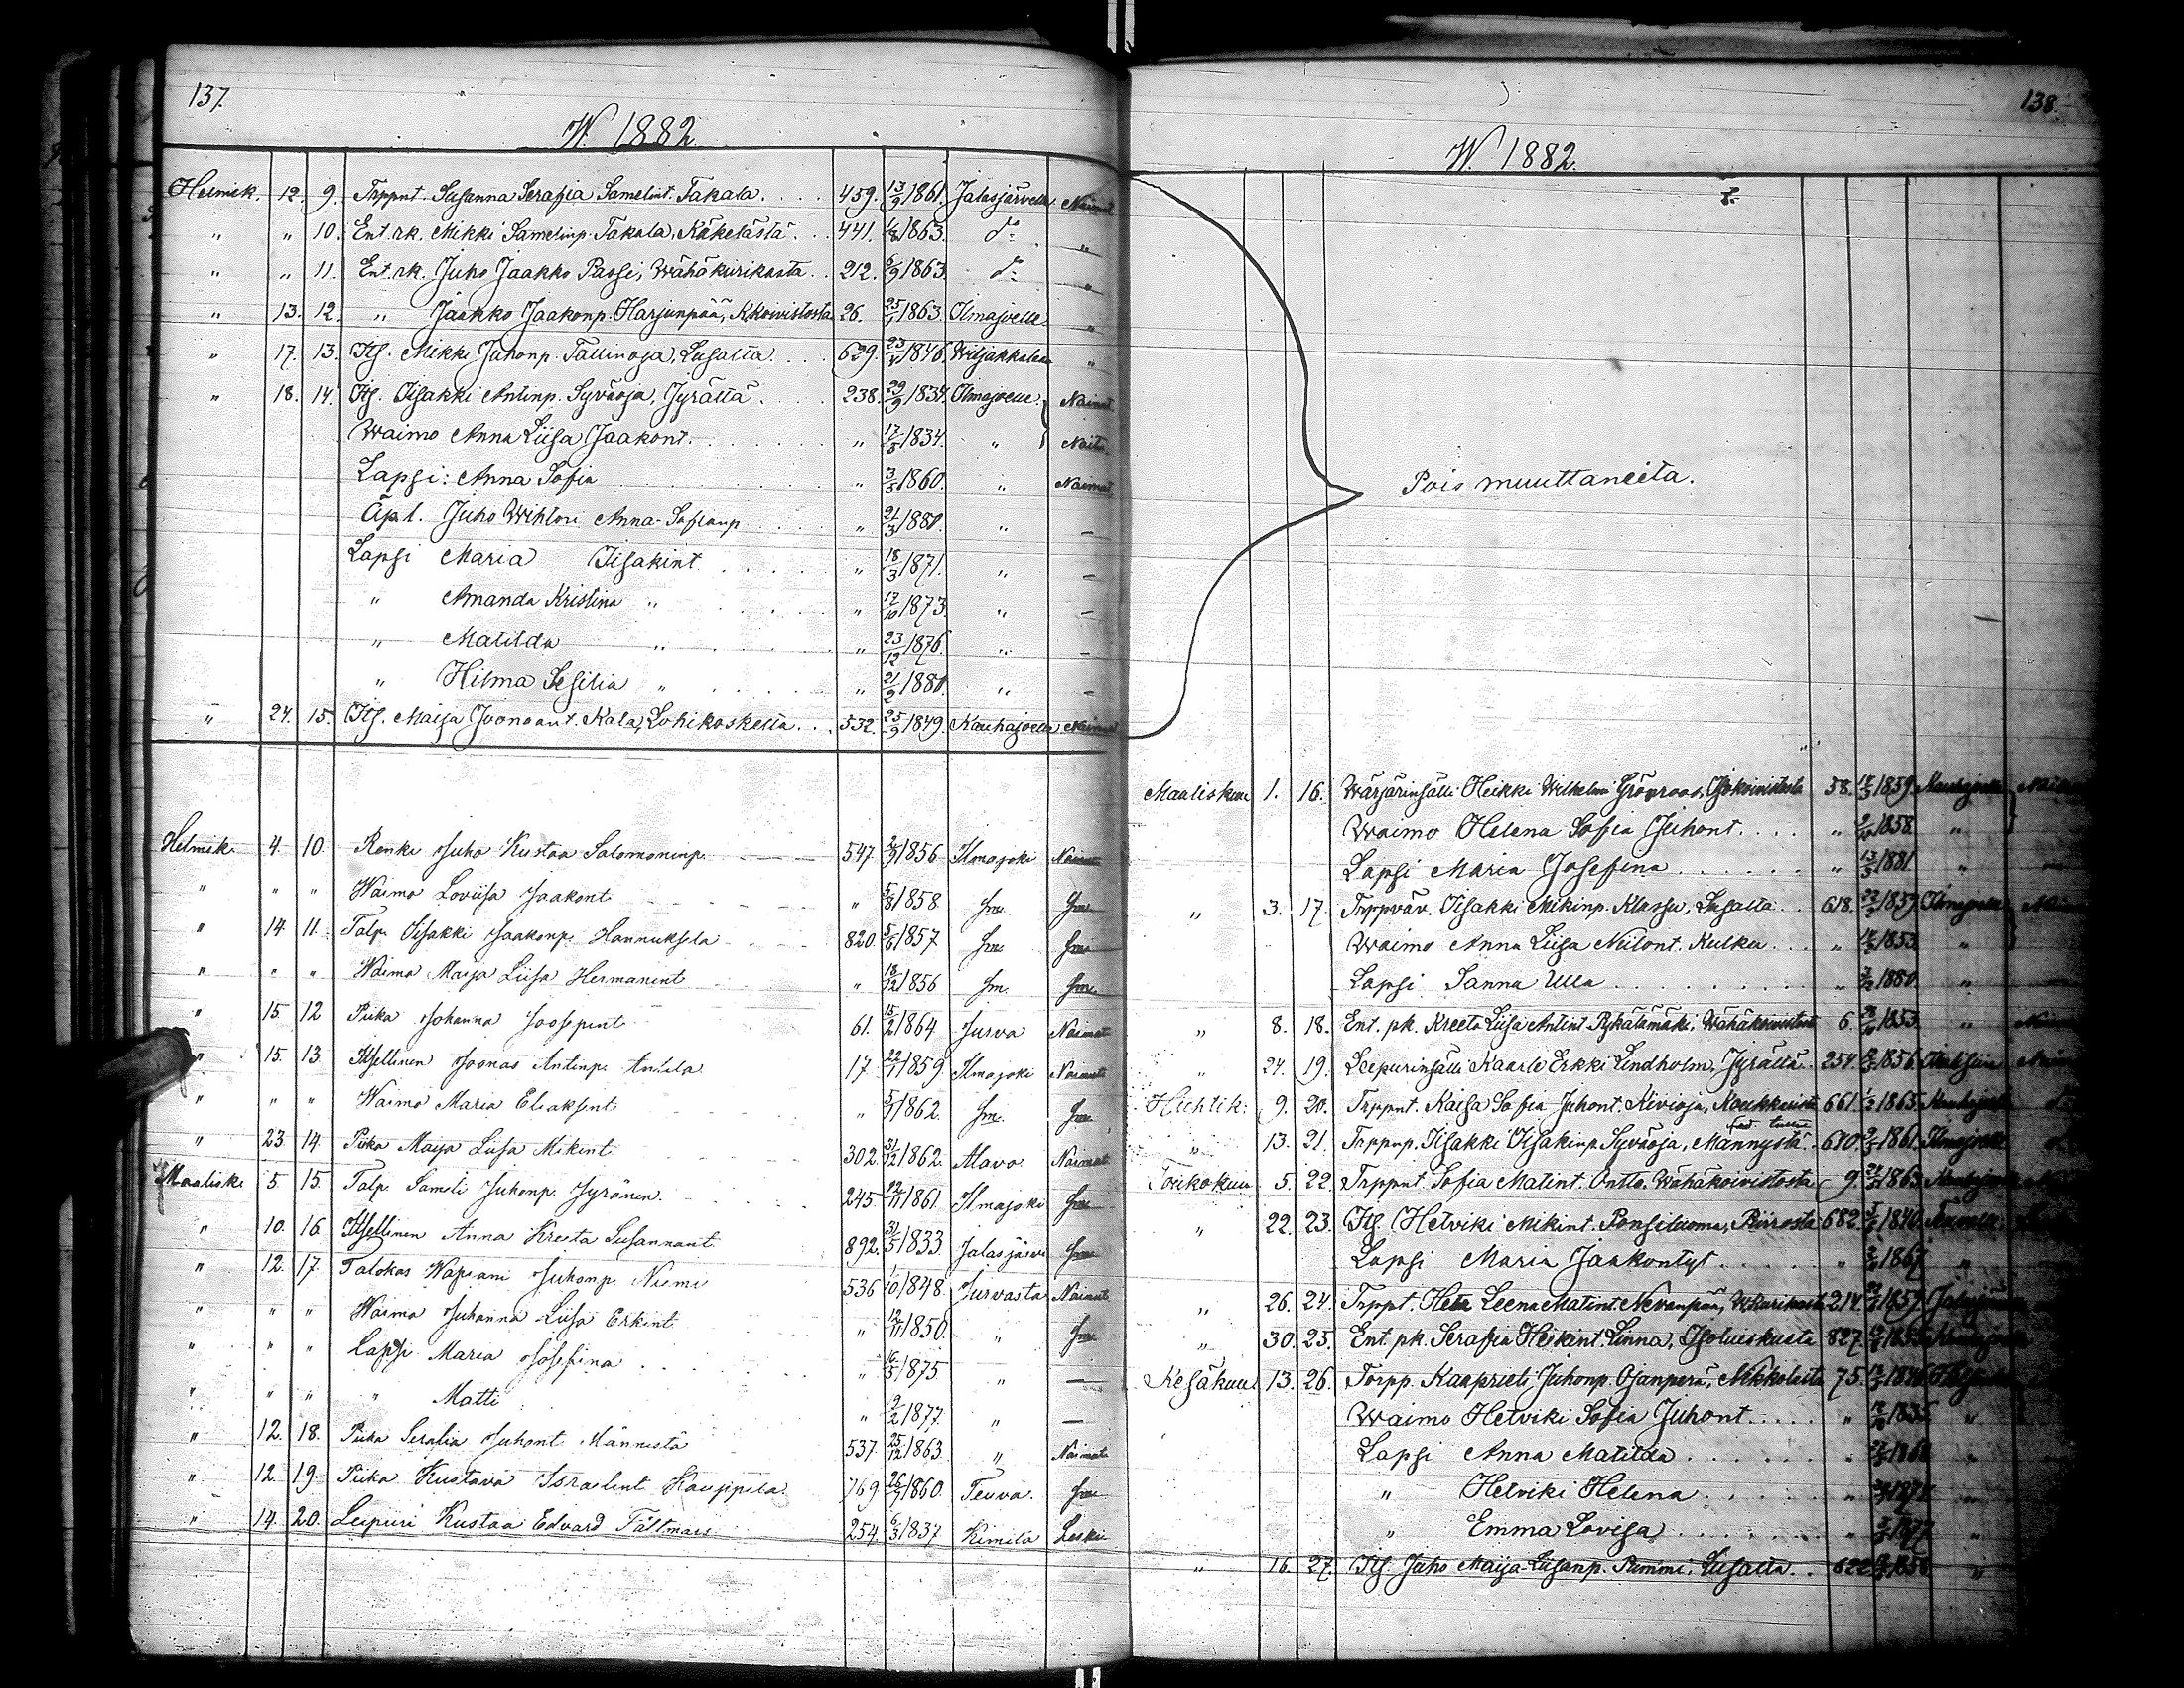 137.
W. 1882.
Helmik. 12. 9. Trppnt. Susanna Serafia Samelint. Takala. 459. 13/9 1861. Jalasjärvelle Naimat.
" " 10. Ent. rk. Mikki Samelinp. Takala, Käkelästä. 441. 1863. do "
" " 11. Ent. rk. Juho Jaakko Passi, Wähäkurikasta. 212. 6/9 1863. do "
" 13. 12. " Jaakko Jaakonp. Harjunpää, K.koivistosta 26. 25/1 1863. Ilmajoelle "
" 17. 13. Its. Mikki Juhonp. Tallinoja, Lusalta. 629. 1846. "
" 18. 14. Its. Iisakki Antinp. Syväoja, Jyrältä. 238. 29/9 1834. Ilmajoelle. Nainut
Waimo Anna Liisa Jaakont. " 17/5 1834. " Naitu.
Lapsi: Anna Sofia " 3/5 1860. " Naimat.
Äp. l. Juho Wihtori Anna-Sofianp " 21/3 1880. " –
Lapsi Maria Iisakint " 18/3 1871. " –
" Amanda Kristina " " 17/10 1873. " –
" Matilda " " 23/12 1876. " –
" Hilma Sesilia " " 21/2 1880. " –
" 24. 15. Its. Maija Joonaant. Kala, Lohikoskelta. 532. 25/9 1849. Kauhajoelle Naimat
Helmik. 4 10. Renki Juho Kustaa Salomoninp. 547. 1856 Ilmajoki Nainut
" " " Waimo Loviisa Jaakont " 5/8 1858. Sm. Sm.
" 14 11. Talp. Iisakki Jaakonp. Hannuksela 820. 5/6 1857 Sm. Sm.
" " " Waimo Maija Liisa Hermanint " 18/12 1856 Sm. Sm.
" 15. 12 Piika Johanna Joosepint 61. 15/2 1864 Jurva Naimat
" 15. 13. Itsellinen Joonas Antinp. Antila 17. 1859. Ilmajoki
" " " Waimo Maria Eliaksent " 1862. Sm. Sm.
" 23 14. Piika Maija Liisa Mikint. 302. 31/12 1862. Alavo. Naimat
Maalisk. 5. 15. Talp. Sameli Juhonp. Jyränen. 245. 1861. Ilmajoki Sm.
" 10. 16. Itsellinen Anna Kreeta Susannant. 892. 31/5 1833. Jalasjärvi Sm.
" 12. 17. Talokas Wapiani Juhonp. Niemi 536 1/10 1848. Jurvasta Nainut
" " " Waimo Juhanna Liisa Erkint " 12/11 1850. " Sm.
" " " Lapsi Maria Josefina " 16/5 1875. " –
" " " " Matti " 9/2 1877. " –
" 12. 18. Piika Serafia Juhont. Männistä 537. 25/12 1863. " Naimat
" 12. 19. Piika Kustava Israelint Kauppila. 769. 26/7 1860. Teuva. Sm.
" 14. 20. Leipuri Kustaa Edvard Fältmars 254. 6/3 1837. Kimilä Leski
138.
W. 1882.
Pois muuttaneita.
Maaliskuu 1. 16. Wärjärinsälli Heikki Wilhelmi Grönroos, Isokoivistosta 58. 1859.
Waimo Helena Sofia Juhont. " 1858. "
Lapsi Maria Josefina " 13/3 1881. "
" 3. 17. Trppväv. Iisakki Mikinp. Klassu, Lusalta. 618. 1857. Ilmajoelle
Waimo Anna Liisa Neilont. Kulku. " 1853. "
Lapsi Sanna Ulla " 1880. "
" 8. 18. Ent. pk. Kreeta Liisa Antint. Pykälämäki, Wähäkoivistosta 6. 1853. "
" 24. 19. Leipurinsälli Kaarle Erkki Lindholm, Jyrältä. 254. 1856.
Huhtik. 9. 20. Trppnt. Kaisa Sofia Juhont. Kivioja, 661. 1865.
" 13. 21. Trppnp. Iisakki Iisakinp. Syväoja, Männystä. 610. 1861. Ilmajoelle
Toukokuu 5. 22. Trppnt. Sofia Matint. Ontto. Wähäkoivistosta 9. 1863.
" 22. 23. Its. Hetviki Mikint. Ponsiluoma, Piirosta 682. 1840.
Lapsi Maria Jaakontyt. " 1867. "
" 26. 24. Trppt. Heta Leena Matint Nevanpää, W.kurikasta 214. 1857.
" 30. 25. Ent. pk. Serafia Heikint. Linna, Isolueskusta 827.
Kesäkuu 13. 26. Torpp. Kaaprieli Juhonp. Ojanperä, Nikkolasta 75.
Waimo Hetviki Sofia Juhont. " 1835. "
Lapsi Anna Matilda "
" Hetviki Helena "
" Emma Lovisa " 1877 "
" 16. 27. Its. Juho Maija-Liisanp. Pummi, Lusalta. 622. "